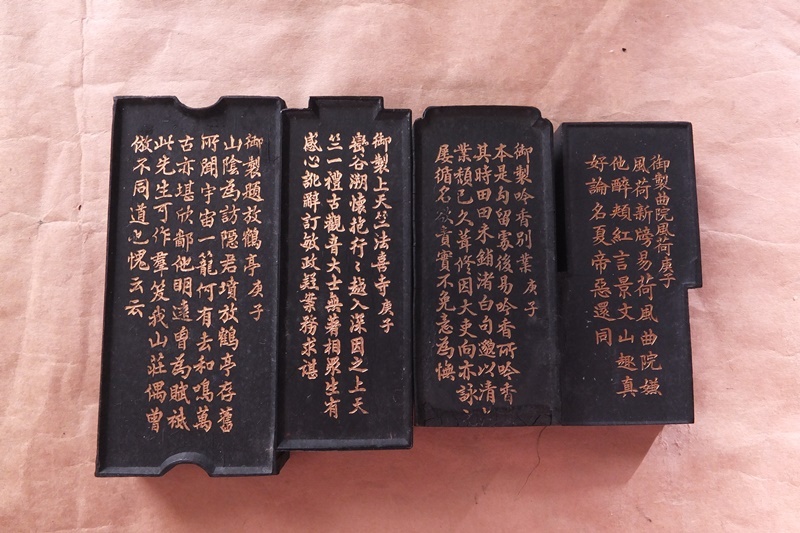 御製曲院風荷庚子
風荷新牓易荷風曲院嫌
他醉頰紅言景文山趣真
好論名夏帝惡還同
御製吟香別業庚子
本是勾留處後易吟香所吟香
其時田田未鋪渚白句邀以清
業頹已久葺修因大吏向亦詠
屡循名欲責實不免意為憮
御製上天竺法喜寺庚子
巒谷溯懷抱行〻越入深因之上天
竺一禮古觀音大士無著相眾生有
感心訛辭訂敏政疑業務求諶
御製題放鶴亭庚子
山陰為訪隱君墳放鶴亭存舊
所聞宇宙一籠何有去和鳴萬
古亦堪欣鄙他明遠卑為賦祗
此先生可作羣笈我山莊偶曾
倣不同道也愧云云